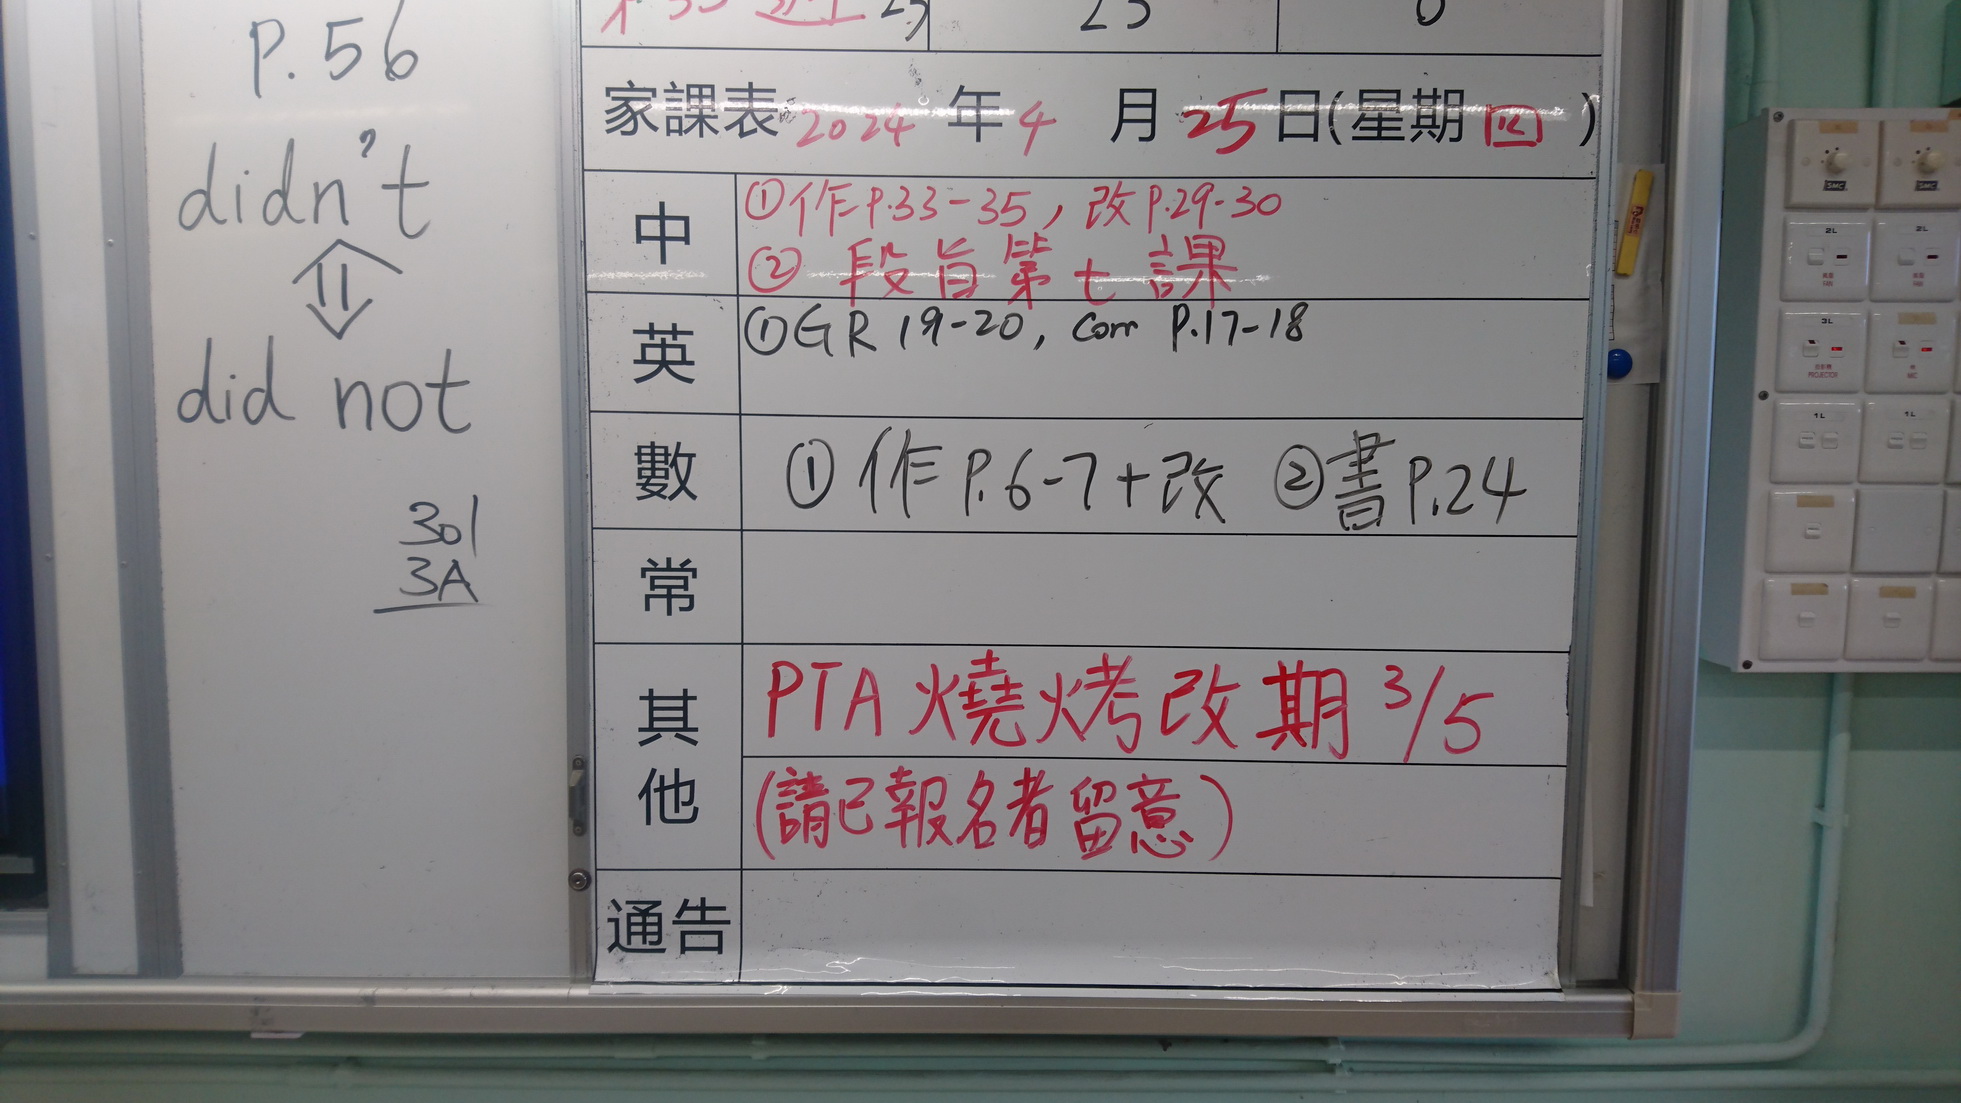 p.56
didn't
did not
301
3A
23
家課表 2024 年 4 月 25 日(星期 四 )
中
①作P.33-35, 改P.29-30
② 段旨第七課
英
①GR 19-20, Corr P.17-18
數
① 作 P.6-7+改 ②書P.24
常
其他
PTA 燒烤改期 3/5
(請已報名者留意)
通告
SMC
SMC
2L
2L
FAN
FAN
3L
PROJECTOR
MIC
1L
1L